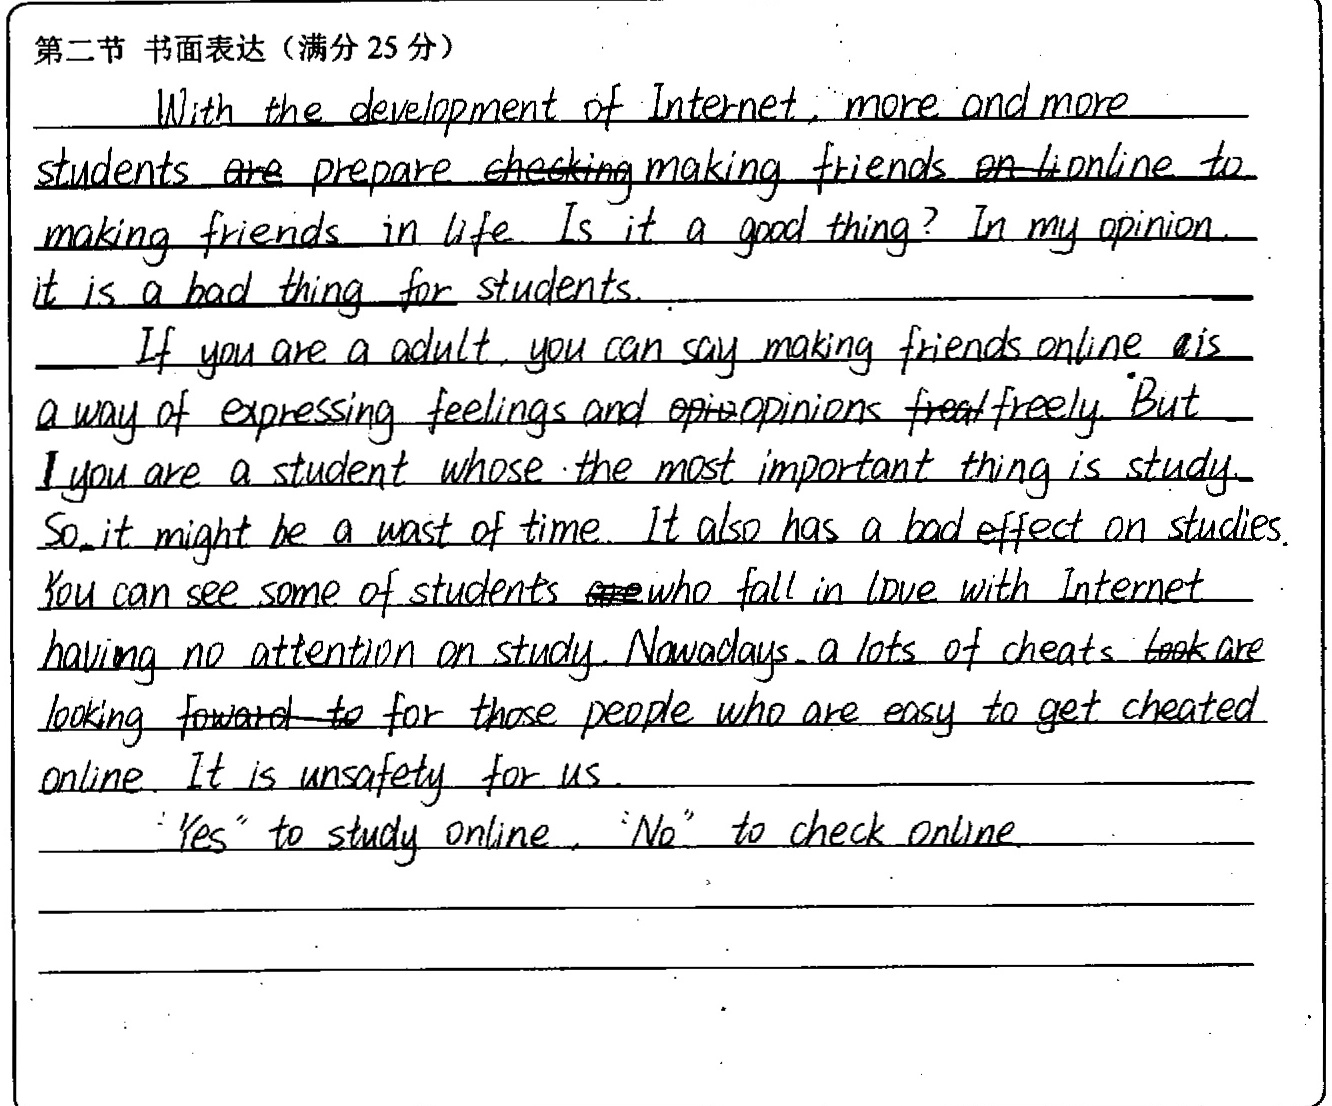 第二节 书面表达（满分 25 分）
With the development of Internet, more and more
students are prepare checking making friends on li online to
making friends in life. Is it a good thing? In my opinion,
it is a bad thing for students.
If you are a adult, you can say making friends online is
a way of expressing feelings and opin opinions freal freely. But
I you are a student whose the most important thing is study.
So, it might be a wast of time. It also has a bad effect on studies.
You can see some of students are who fall in love with Internet
having no attention on study. Nowadays, a lots of cheats took are
looking foward to for those people who are easy to get cheated
online. It is unsafety for us.
"Yes" to study online, "No" to check online.